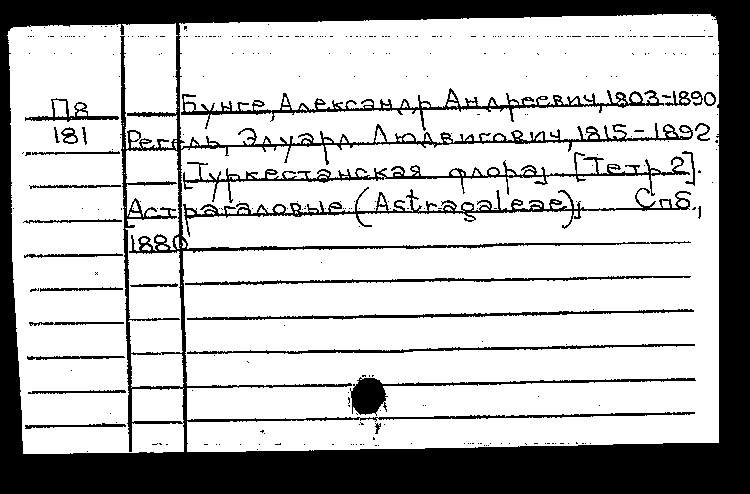 П8 Бунге, Александр Андреевич, 1803-1890.
181 Регель, Эдуард Людвигович, 1815-1892.
[Туркестанская флора]. [Тетр. 2].
[Астрагаловые (Astragaleae)]. Спб.,
1880